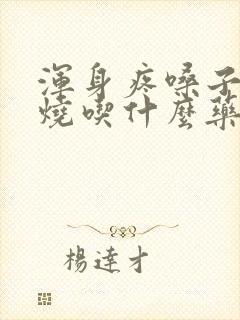 渾身疼嗓子
燒喫什麼藥
楊達才